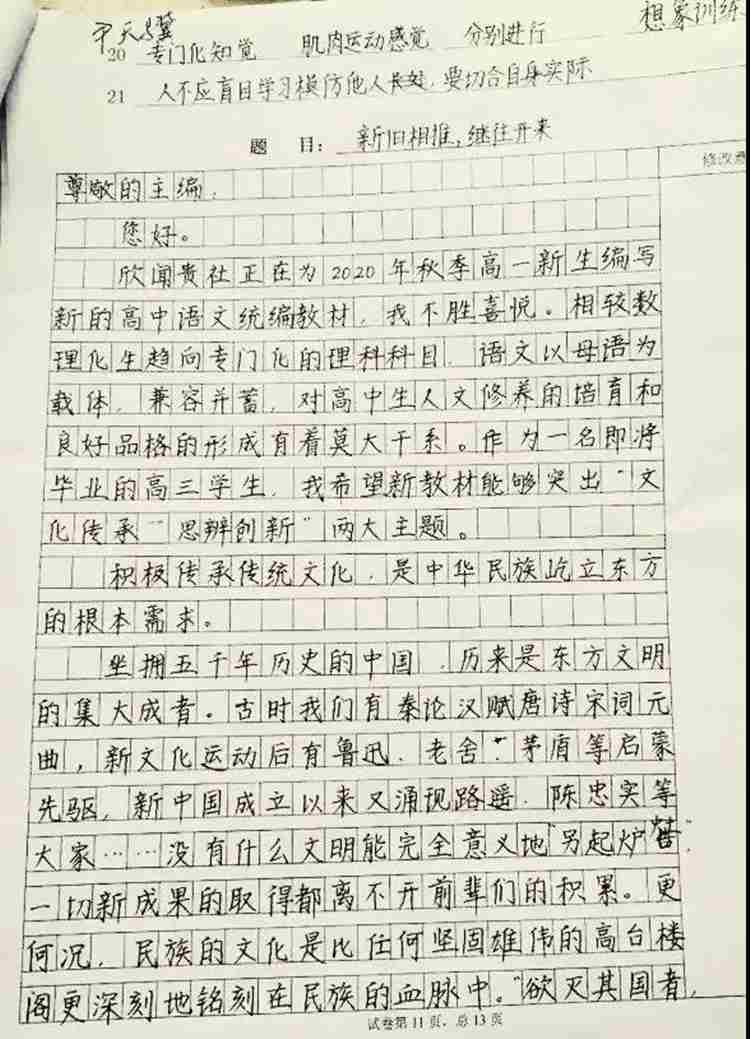 尹天翼 想象训练
20 专门化知觉 肌肉运动感觉 分别进行
21 人不应盲目学习模仿他人长处,要切合自身实际
题 目: 新旧相推,继往开来
修改意
尊敬的主编:
您好。
欣闻贵社正在为2020年秋季高一新生编写
新的高中语文统编教材,我不胜喜悦。相较数
理化生趋向专门化的理科科目,语文以母语为
载体,兼容并蓄,对高中生人文修养的培育和
良好品格的形成有着莫大干系。作为一名即将
毕业的高三学生,我希望新教材能够突出“文
化传承”“思辨创新”两大主题。
积极传承传统文化,是中华民族屹立东方
的根本需求。
坐拥五千年历史的中国,历来是东方文明
的集大成者。古时我们有秦论汉赋唐诗宋词元
曲,新文化运动后有鲁迅、老舍、茅盾等启蒙
先驱,新中国成立以来又涌现路遥、陈忠实等
大家……没有什么文明能完全意义地“另起炉灶”,
一切新成果的取得都离不开前辈们的积累。更
何况,民族的文化是比任何坚固雄伟的高台楼
阁更深刻地铭刻在民族的血脉中。“欲灭其国者,
试卷第11页,总13页